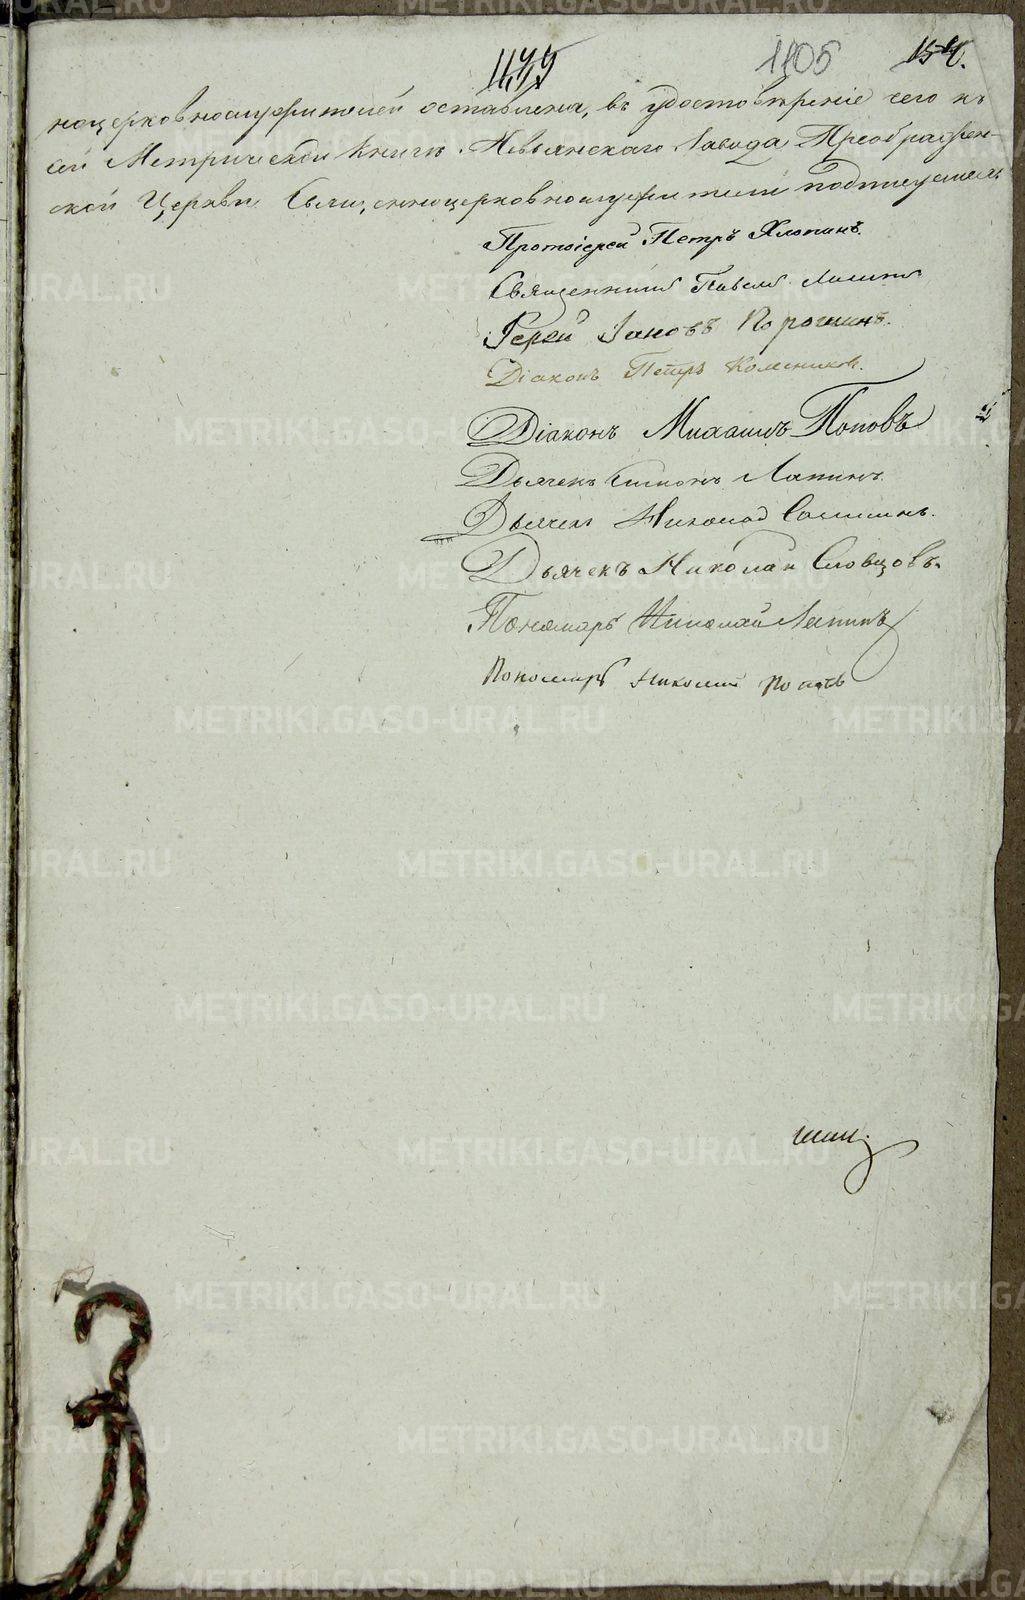 1175
1105
154.
ноцерковнослужителей оставлена, въ удостовѣреніе чего къ
сей Метрической Книгѣ Невьянскаго Завода Преображен-
ской Церкви священноцерковнослужители подписуемся
Протоіерей Петръ Хлопинъ.
Священникъ Павелъ
Іерей Іаковъ Порошинъ.
Діаконъ Петръ Колесниковъ.
Діаконъ Михаилъ Поповъ
Дьячекъ Симонъ Лапинъ.
Дьячекъ Николай
Дьячекъ Николай Словцовъ.
Пономарь Николай Лапинъ
Пономарь Николай
METRIKI.GASO-URAL.RU